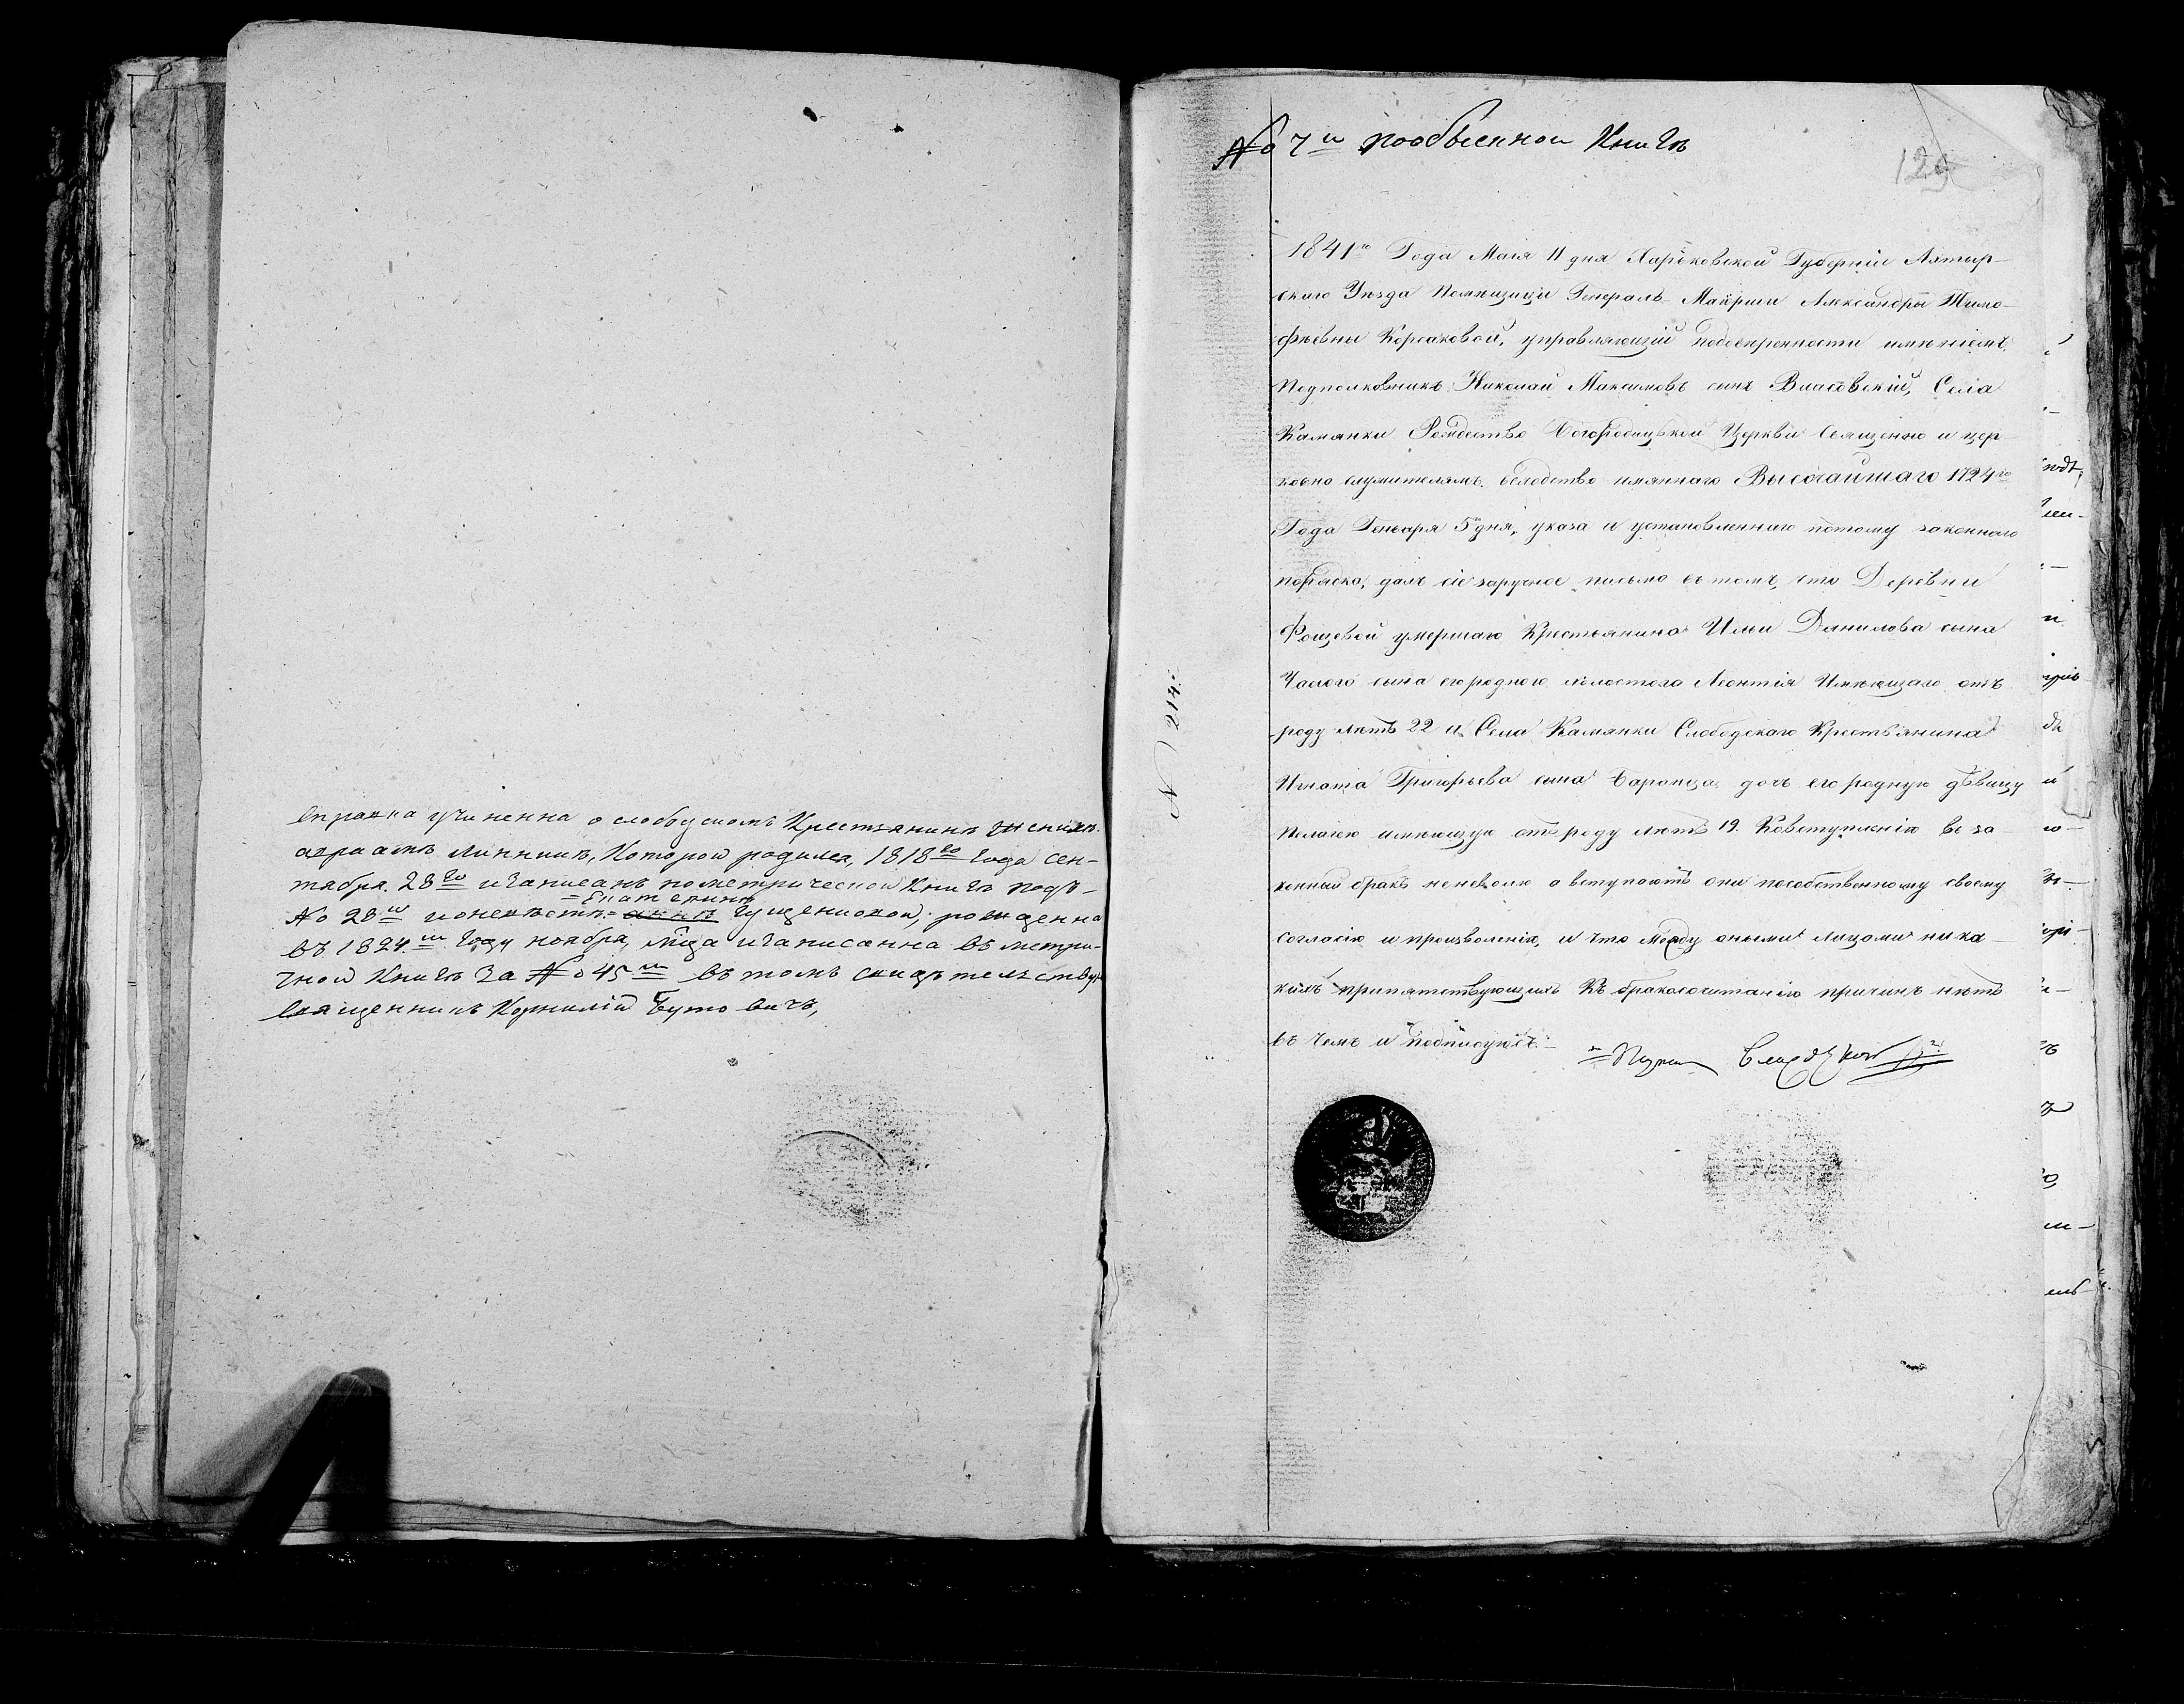 Справка учиненна о слободскомъ Крестянинѣ жених.
аврааме Линникѣ, Которой родился, 1818го Года Сен-
тября 28го и Записанъ по метрической Книгѣ подъ-
= Екатеринѣ
№ 28м и о невѣстѣ = Гущениковой, рожденна
въ 1824м Году ноября мца и Записанна въ метри-
чной Книгѣ За № 45м въ томъ свидѣтельствую
Священникъ Корнилій Бутовичъ,
№ 7й пообыскной Книгѣ
129
N 214.
1841го Года Маія 11 дня Харьковской Губерніи Ахтыр-
скаго Уѣзда Помѣщицы Генералъ-Маіорши Александры Тимо-
фѣевны Корсаковой, управляющій подовѣренности имѣніемъ
Подполковникъ Николай Максимовъ сынъ Власовскій, Села
Камянки Рождество Богородицкой Церкви Священно и цер
ковно служителямъ вслѣдство имяннаго Высочайшаго 1724го
Года Генваря 5 дня, указа и установленнаго потому законнаго
порядка, далъ сіе заручное письмо въ томъ, что Деревни
умершаго Крестьянина Ильи Данилова сына
Чалого сына его роднаго холостого Леонтія Имѣющаго отъ
роду лѣтъ 22 и Села Камянки Слободскаго Крестьянина
Игната Григорьева сына Баранца дочь его родную дѣвицу
Пелагею имѣющую отъ роду лѣтъ 19. Ковступленію въ за-
конный бракъ неневолю а вступаютъ они пособственному своему
согласію и произволенію, и что между оными лицами ника-
кихъ припятствующихъ Къ бракосочитанію причинъ нѣтъ
въ чемъ и подписуюсь.